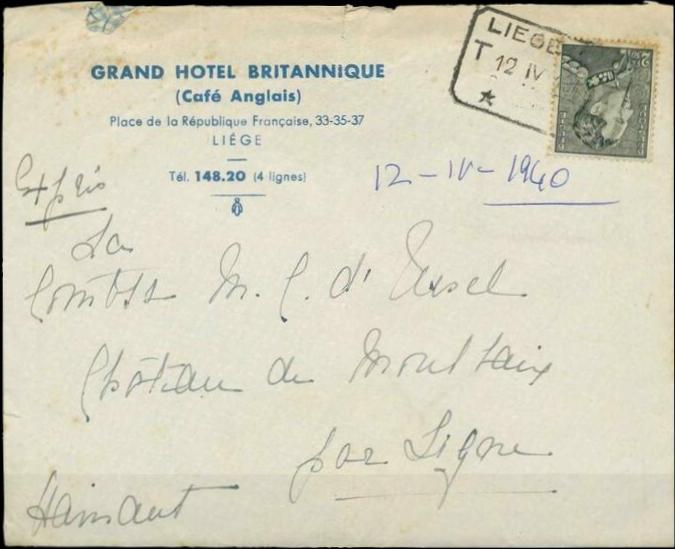 GRAND HOTEL BRITANNIQUE
(Café Anglais)
Place de la République Française, 33-35-37
LIÉGE
Tél. 148.20 (4 lignes)
LIEGE
T 12 IV
12-IV-1940
Exprès
La
Comtesse M. C. d'Ursel
Château de Moulbaix
par Ligne
Hainaut